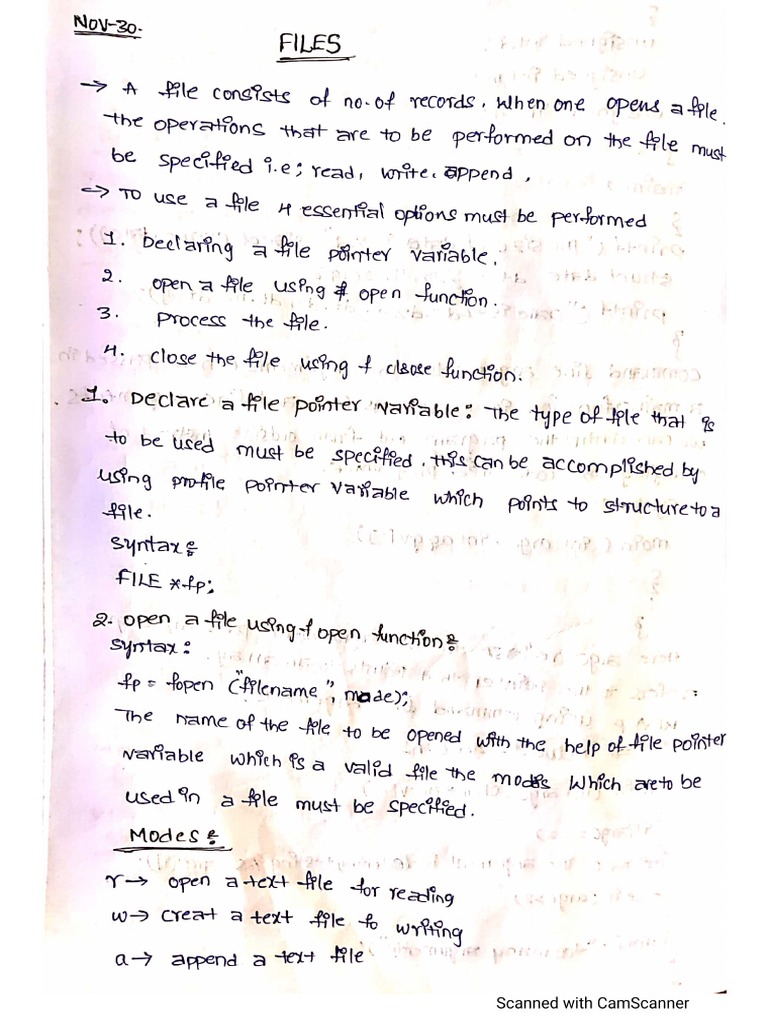 NOV-30.
FILES
→ A file consists of no. of records. When one opens a file.
the operations that are to be performed on the file must
be specified i.e; read, write. append.
→ TO use a file 4 essential options must be performed
1. Declaring a file pointer variable.
2. open a file using f open function.
3. process the file.
4. close the file using f close function.
1. Declare a file pointer variable: The type of file that is
to be used must be specified. this can be accomplished by
using profile pointer variable which points to structure to a
file.
syntax:
FILE *fp;
2. open a file using f open function:
syntax:
fp = fopen ("filename", mode);
The name of the file to be opened with the help of file pointer
variable which is a valid file the modes which are to be
used in a file must be specified.
Modes:
r → open a text file for reading
w → creat a text file fo writing
a → append a text file
Scanned with CamScanner